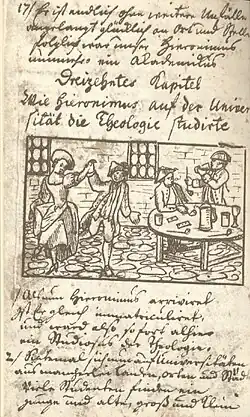 17/ Er ist endlich ohne weitere Unfälle
angelangt glücklich an Ort und Stelle
folglich war unser Hieronimus
nunmehr ein Akademikus
Dreizehntes Kapitel
Wie Hieronimus auf der Univer
sität die Theologie studirte
1/ Als nun Hieronimus arriviret
ist er gleich immatriculiret,
und ward also so fort allhier
ein Studiosus der Theologie.
2/ Sintemal sich nun auf Universitäten
aus mancherlei Landen, Orten und Städ
Viele Studenten finden ein
junge und alte, groß und klein